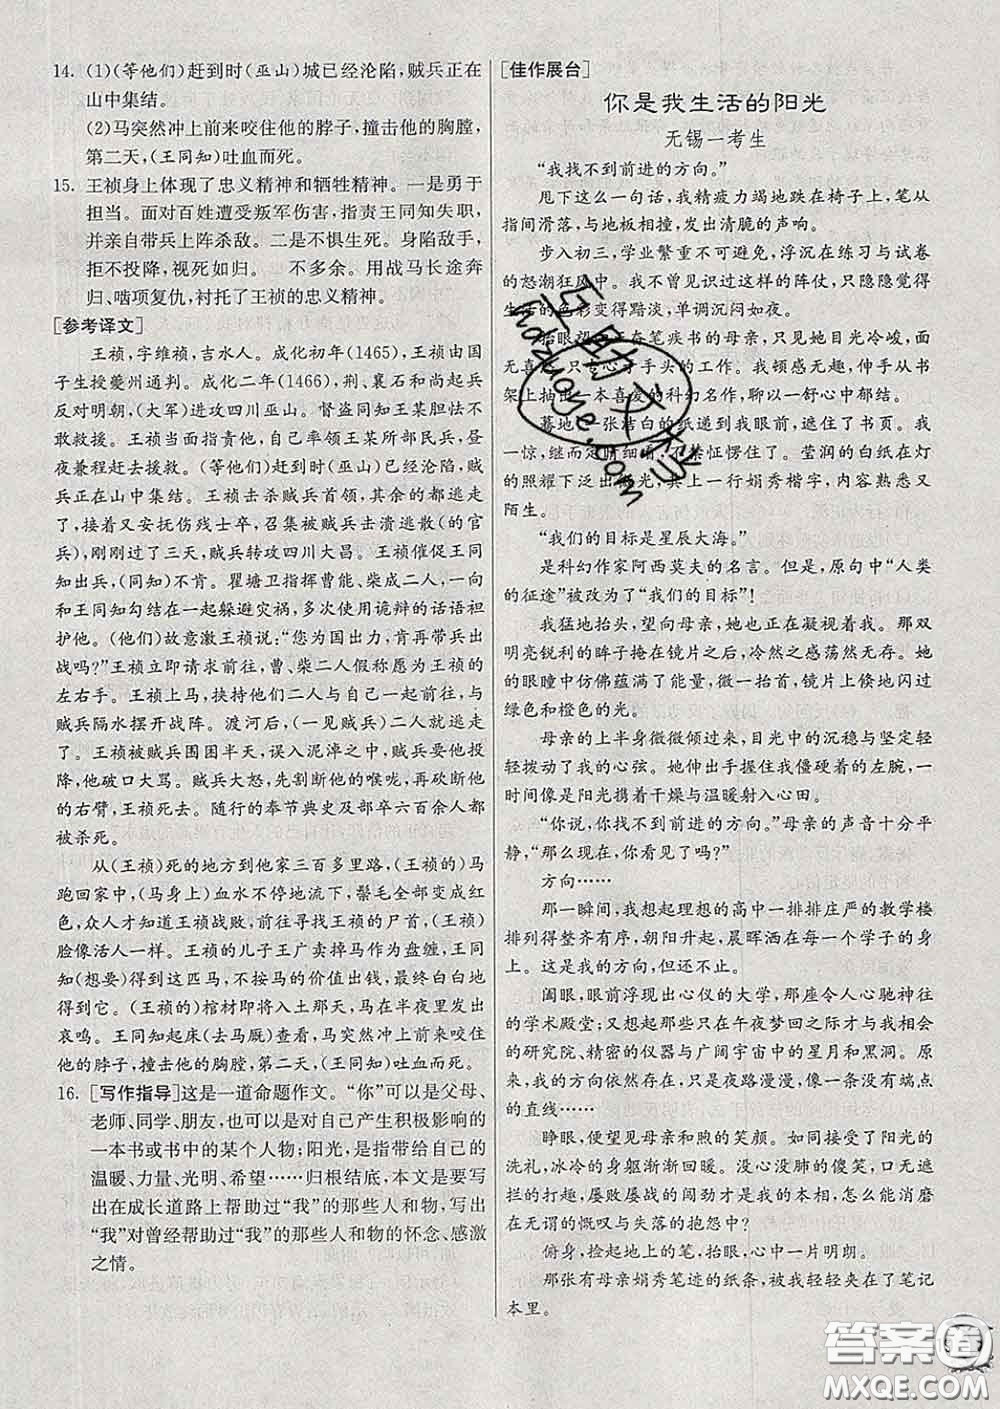 14. (1)(等他们)赶到时(巫山)城已经沦陷,贼兵正在
山中集结。
(2)马突然冲上前来咬住他的脖子,撞击他的胸膛,
第二天,(王同知)吐血而死。
15. 王祯身上体现了忠义精神和牺牲精神。一是勇于
担当。面对百姓遭受叛军伤害,指责王同知失职,
并亲自带兵上阵杀敌。二是不惧生死。身陷敌手,
拒不投降,视死如归。 不多余。用战马长途奔
归、啮项复仇,衬托了王祯的忠义精神。
[参考译文]
王祯,字维祯,吉水人。成化初年(1465),王祯由国
子生授夔州通判。成化二年(1466),荆、襄石和尚起兵
反对明朝,(大军)进攻四川巫山。督盗同知王某胆怯不
敢救援。王祯当面指责他,自己率领王某所部民兵,昼
夜兼程赶去援救。(等他们)赶到时(巫山)已经沦陷,贼
兵正在山中集结。王祯击杀贼兵首领,其余的都逃走
了,接着又安抚伤残士卒,召集被贼兵击溃逃散(的官
兵),刚刚过了三天,贼兵转攻四川大昌。王祯催促王同
知出兵,(同知)不答应。瞿塘卫指挥曹能、柴成二人,一
向和王同知勾结在一起躲避灾祸,多次用诡辩的话语袒
护他。(他们)故意激王祯说:“您为国出力,肯再带兵出
战吗?”王祯立即请求前往,曹、柴二人假称愿为王祯的
左右手。王祯上马,挟持他们二人与自己一起前往,与
贼兵隔水摆开战阵。渡河后,(一见贼兵)二人就逃走
了。王祯被贼兵围困半天,误入泥淖之中,贼兵要他投
降,他破口大骂。贼兵大怒,先割断他的喉咙,再砍断他
的右臂,王祯死去。随行的奉节典史及部卒六百余人都
被杀死。
从(王祯)死的地方到他家三百多里路,(王祯的)马
跑回家中,(马身上)血水不停地流下,鬃毛全部变成红
色,众人才知道王祯战败,前往寻找王祯的尸首,(王祯)
脸像活人一样。王祯的儿子王广卖掉马作为盘缠,王同
知(想要)得到这匹马,不按马的价值出钱,最终白白地
得到了。(王祯的)棺材即将入土那天,马在半夜里发出
哀鸣。王同知起床(去马厩)查看,马突然冲上前来咬住
他的脖子,撞击他的胸膛,第二天,(王同知)吐血而死。
16. [写作指导]这是一道命题作文。“你”可以是父母、
老师、同学、朋友,也可以是对自己产生积极影响的
一本书或书中的某个人物;阳光,是指带给自己的
温暖、力量、光明、希望……归根结底,本文是要写
出在成长道路上帮助过“我”的那些人和物,写出
“我”对曾经帮助过“我”的那些人和物的怀念、感激
之情。
[佳作展台]
你是我生活的阳光
无锡一考生
“我找不到前进的方向。”
甩下这么一句话,我精疲力竭地跌在椅子上,笔从
指间滑落,与地板相撞,发出清脆的声响。
步入初三,学业繁重不可避免,浮沉在练习与试卷
的怒潮狂风中。我不曾见识过这样的阵仗,只隐隐觉得
生活的色彩变得黯淡,单调沉闷如夜。
抬眼望向正在奋笔疾书的母亲,只见她目光冷峻,面
无喜色,只专心于手头的工作。我顿感无趣,伸手从书
架上抽出一本喜爱的科幻名作,聊以一舒心中郁结。
蓦地,一张洁白的纸递到我眼前,遮住了书页。我
一惊,继而定睛细看,不禁怔愣住了。莹润的白纸在灯
的照耀下泛出微光,其上一行娟秀楷字,内容熟悉又
陌生。
“我们的目标是星辰大海。”
是科幻作家阿西莫夫的名言。但是,原句中“人类
的征途”被改为了“我们的目标”!
我猛地抬头,望向母亲,她也正在凝视着我。那双
明亮锐利的眸子掩在镜片之后,冷然之感荡然无存。她
的眼瞳中仿佛蕴满了能量,微一抬首,镜片上倏地闪过
绿色和橙色的光。
母亲的上半身微微倾过来,目光中的沉稳与坚定轻
轻拨动了我的心弦。她伸出手握住我僵硬着的左腕,一
时间像是阳光携着干燥与温暖射入心田。
“你说,你找不到前进的方向。”母亲的声音十分平
静,“那么现在,你看见了吗?”
方向……
那一瞬间,我想起理想的高中一排排庄严的教学楼
排列得整齐有序,朝阳升起,晨晖洒在每一个学子的身
上。这是我的方向,但还不止。
阖眼,眼前浮现出心仪的大学,那座令人心驰神往
的学术殿堂;又想起那些只在午夜梦回之际才与我相会
的研究院、精密的仪器与广阔宇宙中的星月和黑洞。原
来,我的方向依然存在,只是夜路漫漫,像一条没有端点
的直线……
睁眼,便望见母亲和煦的笑颜。如同接受了阳光的
洗礼,冰冷的身躯渐渐回暖。没心没肺的傻笑,口无遮
拦的打趣,屡败屡战的闯劲才是我的本相,怎能湮没
在无谓的慨叹与失落的抱怨中?
俯身,捡起地上的笔,抬眼,心中一片明朗。
那张有母亲娟秀笔迹的纸条,被我轻轻夹在了笔记
本里。
互助文档
hdzuoye.com
答案圈
MXQE.COM